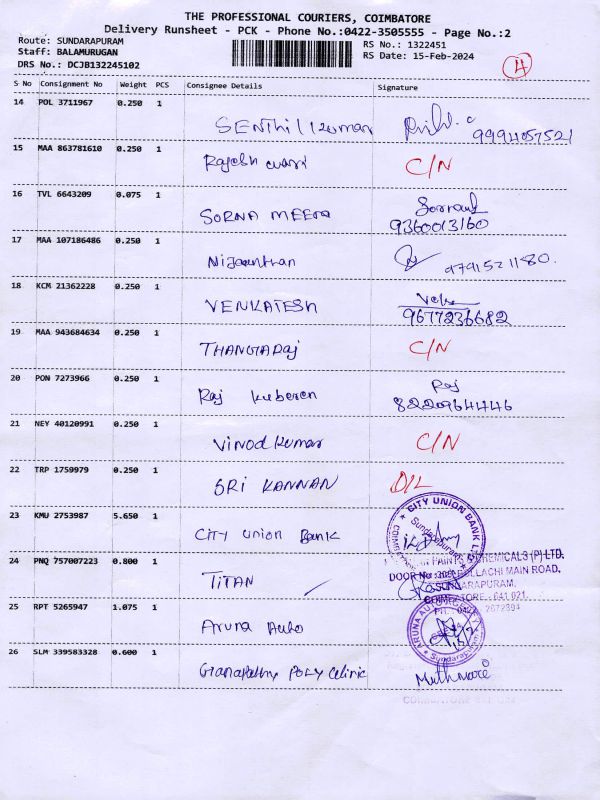 THE PROFESSIONAL COURIERS, COIMBATORE
Delivery Runsheet - PCK - Phone No.:0422-3505555 - Page No.:2
Route: SUNDARAPURAM
Staff: BALAMURUGAN
DRS No.: DCJB132245102
RS No.: 1322451
RS Date: 15-Feb-2024
4
S No Consignment No Weight PCS Consignee Details Signature
14 POL 3711967 0.250 1
SENTHIL KUMAR 9994057521
15 MAA 863781610 0.250 1
Rajesh C/N
16 TVL 6643209 0.075 1
SORNA MEENA
9360013160
17 MAA 107186486 0.250 1
9791521180.
18 KCM 21362228 0.250 1
VENKATESH
9677236682
19 MAA 943684634 0.250 1
THANGARAJ C/N
20 PON 7273966 0.250 1
Raj kuberen Raj
8220964446
21 NEY 40120991 0.250 1
Vinod kumar C/N
22 TRP 1759979 0.250 1
SRI KANNAN D/L
23 KMU 2753987 5.650 1
City Union Bank
CITY UNION BANK LTD
Sundarapuram
24 PNQ 757007223 0.800 1
TITAN
PAINTS CHEMICALS (P) LTD.
DOOR No: POLLACHI MAIN ROAD,
SUNDARAPURAM,
COIMBATORE - 641 021.
25 RPT 5265947 1.075 1
Aruna Auto
ARUNA AUTO
Sundarapuram
26 SLM 339583328 0.600 1
Ganapathy POLY clinic